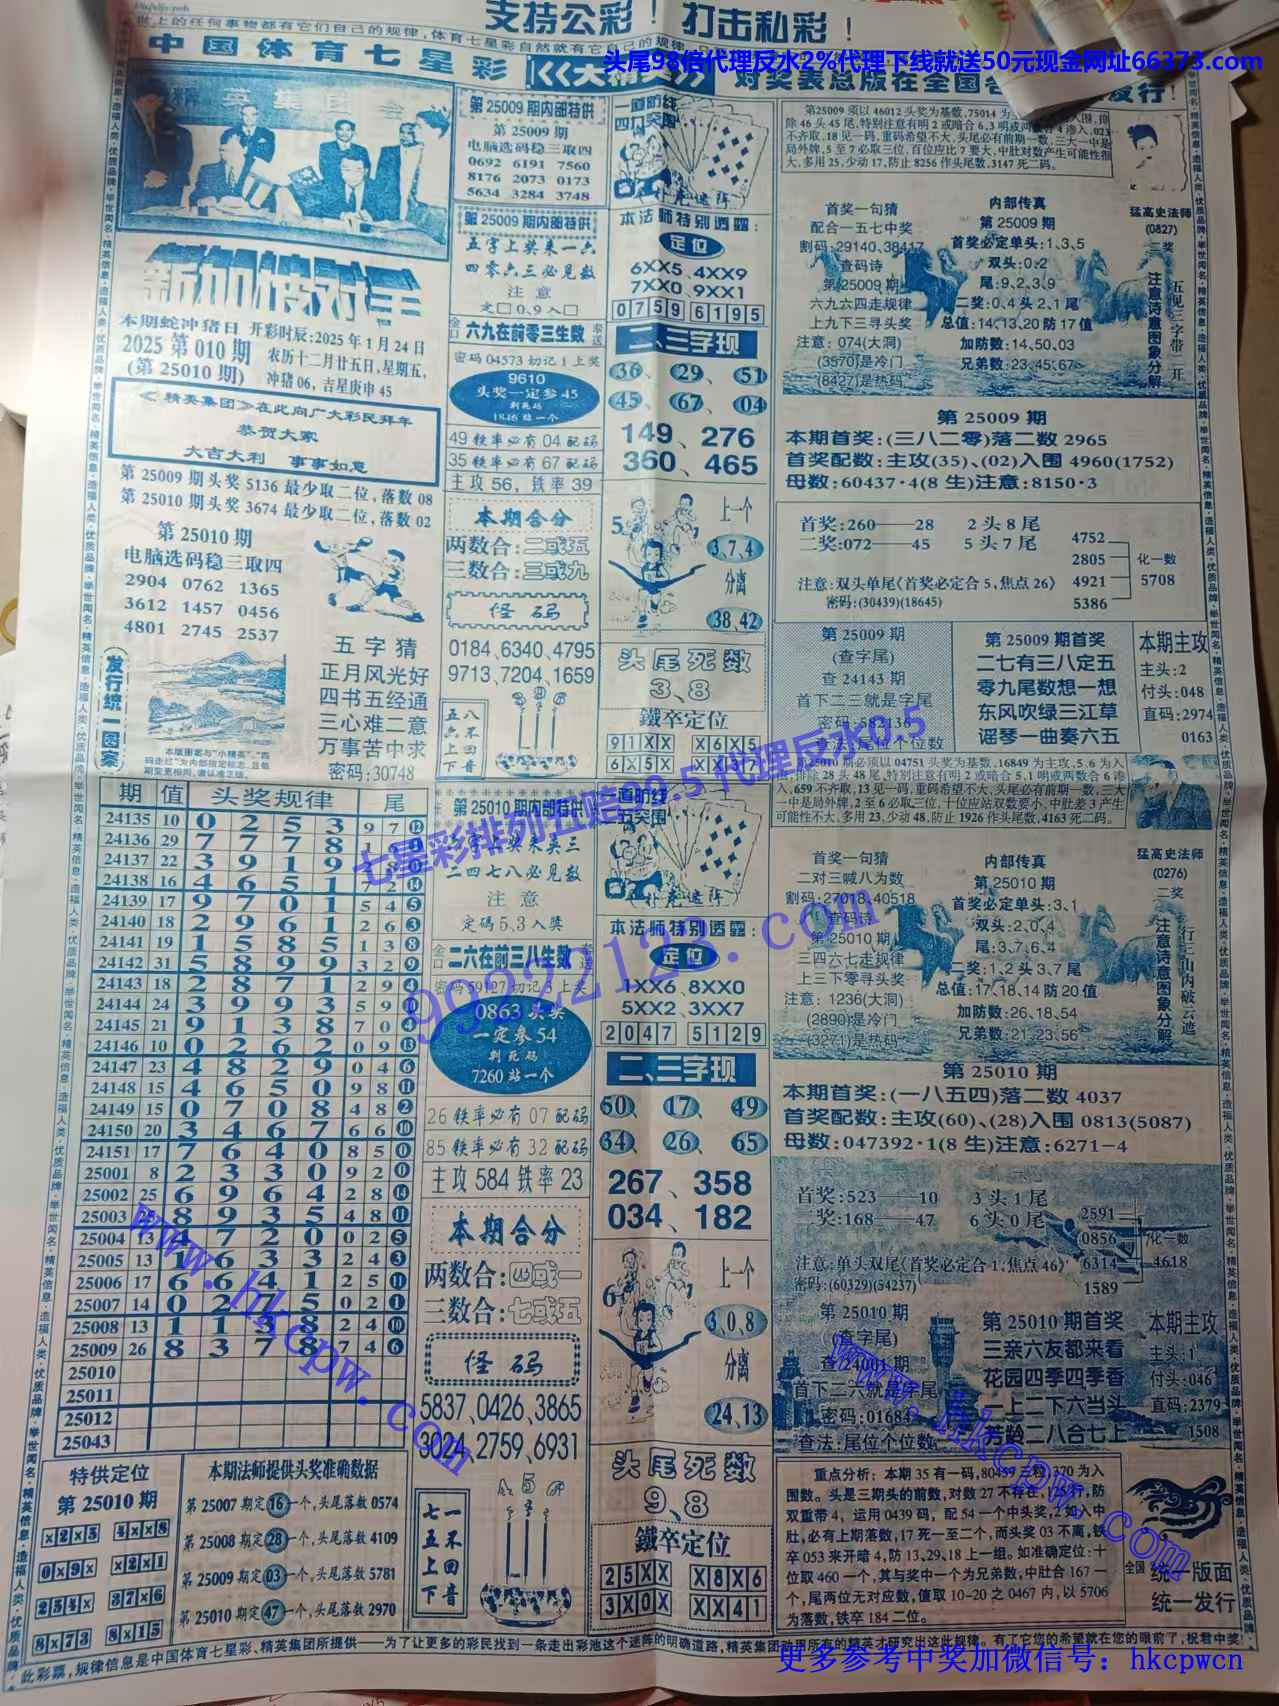 支持公彩！打击私彩！
世上的任何事物都有它们自己的规律,体育七星彩自然就有它自己的规律
头尾98倍代理反水2%代理下线就送50元现金网址66373.com
中国体育七星彩
新加坡对手
本期蛇冲猪日 开彩时辰:2025年1月24日
2025第010期 农历十二月廿五日,星期五,
(第25010期) 冲猪06,吉星庚申45
《精英集团》在此向广大彩民拜年
恭贺大家
大吉大利 事事如意
第25009期头奖5136最少取二位,落数08
第25010期头奖3674最少取二位,落数02
第25010期
电脑选码稳三取四
2904 0762 1365
3612 1457 0456
4801 2745 2537
发行统一图案
五字猜
正月风光好
四书五经通
三心难二意
万事苦中求
密码:30748
第25009期内部特供
第25009期
电脑选码稳三取四
0692 6191 7560
8176 2073 0173
5634 3284 3748
第25009期内部特供
五字上奖来一六
四零六三必见数
注意
文口0.9入口
六九在前零三生数
密码04573切记1上奖
9610
头奖一定参45
判死码
1846站一个
49铁率必有04配码
35铁率必有67配码
主攻56,铁率39
本期合分
两数合:二或五
三数合:三或九
怪码
0184、6340、4795
9713、7204、1659
一道防线
四门突围
扑克迷阵
本法师特别透露:
定位
6XX5、4XX9
7XX0、9XX1
0759 6195
二、三字现
36、29、51
45、67、04
149、276
360、465
5
上一个
3,7,4
分离
38,42
头尾死数
3、8
鐵卒定位
91XX X6X5
6X5X XX37
内部传真
第25009期
首奖必定单头:1、3、5
双头:0、2
尾:9、2、3、9
二奖:0、4头2、1尾
总值:14、13、20防17值
加防数:14、50、03
兄弟数:23、45、67
首奖一句猜
配合一五七中奖
割码:29140、38417
查码诗
第25009期
六九六四走规律
上九下三寻头奖
注意:074(大洞)
(3570)是冷门
(8427)是热码
猛高史法师
(0827)
注意诗意图象分解
第25009期
本期首奖:(三八二零)落二数2965
首奖配数:主攻(35)、(02)入围4960(1752)
母数:60437·4(8生)注意:8150·3
首奖:260——28 2头8尾
二奖:072——45 5头7尾
注意:双头单尾《首奖必定合5,焦点26》
密码:(30439)(18645)
4752
2805
4921
5386
化一数
5708
第25009期
(查字尾)
查24143期
首下二三就是字尾
密码:582136
查法:尾位个位数
第25009期首奖
二七有三八定五
零九尾数想一想
东风吹绿三江草
谣琴一曲奏六五
本期主攻
主头:2
付头:048
直码:2974
0163
期 值 头奖规律 尾
24135 10 0 2 5 3 9 7 ⑫
24136 29 7 7 7 8
24137 22 3 9 1 9
24138 16 4 6 5 1 2 ⑭
24139 17 9 7 0 1 5 4 ⑤
24140 18 2 9 6 1 2 6 ③
24141 19 1 5 8 5 1 3 ⑧
24142 31 5 8 9 9 3 2 ⑨
24143 18 2 8 7 1 2 9 ④
24144 24 3 9 9 3 5 9 ⑩
24145 21 9 1 3 8 7 0 ④
24146 10 0 2 6 2 0 9 ⑬
24147 23 4 8 2 9 0 4 ⑥
24148 15 4 6 5 0 9 8 ⑪
24149 15 0 7 0 8 4 8 ②
24150 20 3 4 6 7 6 6 ⑩
24151 17 7 6 4 0 8 5 ⓪
25001 8 2 3 3 0 9 2 ⓪
25002 25 6 9 6 4 2 8 ⑭
25003 25 8 9 3 5 4 8 ⑪
25004 13 4 7 2 0 0 2 ⑤
25005 13 1 6 3 3 2 4 ③
25006 17 6 6 4 1 2 5 ⑪
25007 14 0 2 7 5 0 2 ①
25008 13 1 1 3 8 2 4 ⑩
25009 26 8 3 7 8 7 4 ⑥
25010
25011
25012
25043
第25010期内部特供
二四七八必见数
注意
定码5.3入奖
二六在前三八生数
密码59127切记3上奖
0863头奖
一定参54
判死码
7260站一个
26铁率必有07配码
85铁率必有32配码
主攻584铁率23
本期合分
两数合:四或一
三数合:七或五
怪码
5837、0426、3865
3024、2759、6931
本法师特别透露:
定位
1XX6、8XX0
5XX2、3XX7
2047 5129
二、三字现
50、17、49
34、26、65
267、358
034、182
6
上一个
3,0,8
分离
24,13
头尾死数
9、8
鐵卒定位
25XX X8X6
3X0X XX41
首奖一句猜
二对三喊八为数
割码:27018、40518
查码诗
第25010期
三四六七走规律
上三下零寻头奖
注意:1236(大洞)
(2890)是冷门
(3271)是热码
内部传真
第25010期
首奖必定单头:3、1
双头:2、0、4
尾:3、7、6、4
二奖:1、2头3、7尾
总值:17、18、14防20值
加防数:26、18、54
兄弟数:21、23、56
猛高史法师
(0276)
二奖
注意诗意图象分解
第25010期
本期首奖:(一八五四)落二数4037
首奖配数:主攻(60)、(28)入围0813(5087)
母数:047392·1(8生)注意:6271-4
首奖:523——10 3头1尾
奖:168——47 6头0尾
注意:单头双尾《首奖必定合1,焦点46》
密码:(60329)(54237)
2591
0856
6314
1589
化一数
4618
第25010期
(查字尾)
查24001期
首下二六就是字尾
密码:01684
查法:尾位个位数
第25010期首奖
三亲六友都来看
花园四季四季香
一上二下六当头
芳龄二八合七上
本期主攻
主头:1
付头:046
直码:2379
1508
特供定位
第25010期
x2x5 4xx8
0x9x x2x1
254x 37x6
8x73 8x15
本期法师提供头奖准确数据
第25007期定16一个,头尾落数0574
第25008期定28一个,头尾落数4109
第25009期定03一个,头尾落数5781
第25010期定47一个,头尾落数2970
七一
五不
上回
下音
重点分析:本期35有一码,80459三粒,370为入
围数。头是三期头的前数,对数27不存在,125开,防
双重带4,运用0439码,配54一个中头奖,2如入中
肚,必有上期落数,17死一至二个,而头奖03不离,铁
卒053来开暗4,防13、29、18上一组。如准确定位:十
位取460一个,其与奖中一个为兄弟数,中肚合167一
个,尾两位无对应数,值取10-20之0467内,以5706
为落数,铁卒184二位。
全国
统一版面
统一发行
此彩票,规律信息是中国体育七星彩、精英集团所提供——为了让更多的彩民找到一条走出彩池这个迷阵的明确道路,精英集团动用所有的精英才研究出这此规律。有了它您的希望就在您的眼前了,祝君中奖!
七星彩排列五赔99.5 代理反水0.5
9922123.com
www.hkcpw.com
www.hkcpw.com
更多参考中奖加微信号：hkcpwcn